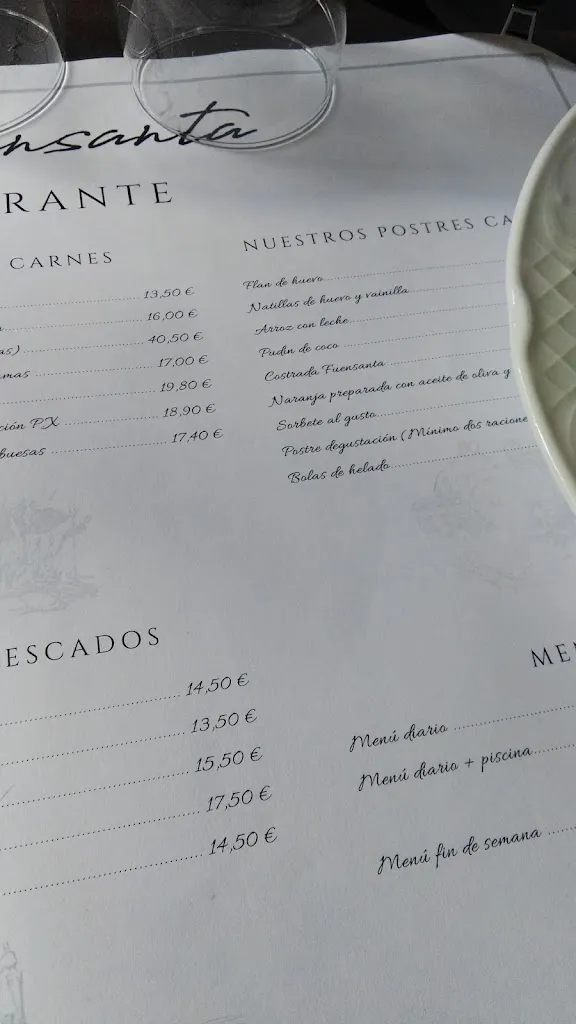 nsanta
RANTE
CARNES
13,50 €
16,00 €
as) 40,50 €
mas 17,00 €
19,80 €
ción PX 18,90 €
buesas 17,40 €
NUESTROS POSTRES CA
Flan de huevo
Natillas de huevo y vainilla
Arroz con leche
Pudin de coco
Costrada Fuensanta
Naranja preparada con aceite de oliva y
Sorbete al gusto
Postre degustación (Mínimo dos racione
Bolas de helado
ESCADOS
14,50 €
13,50 €
15,50 €
17,50 €
14,50 €
MEN
Menú diario
Menú diario + piscina
Menú fin de semana